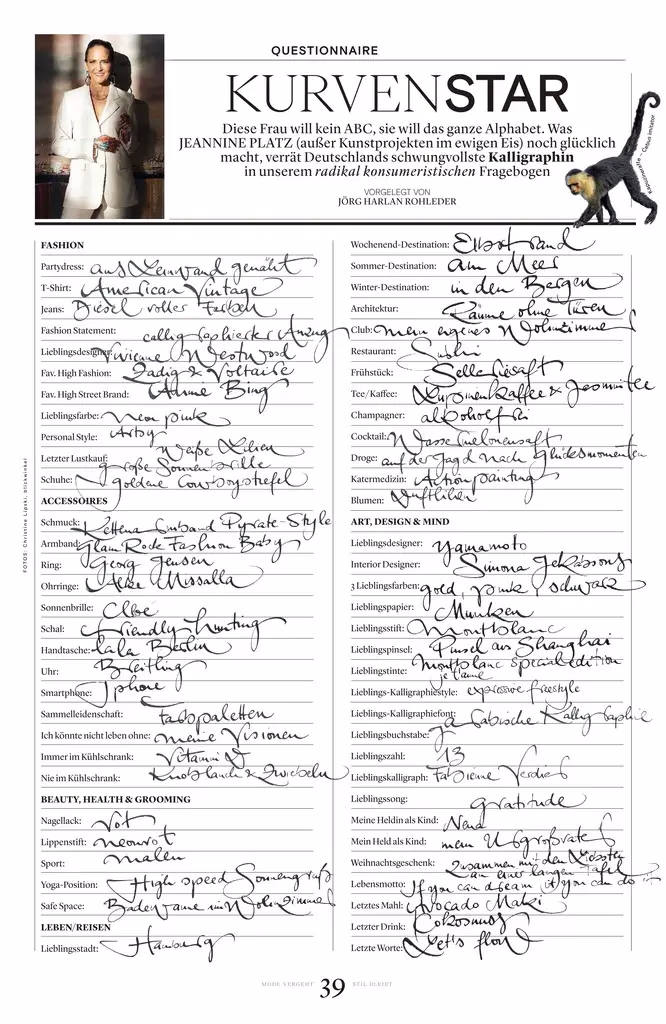 QUESTIONNAIRE
KURVENSTAR
Diese Frau will kein ABC, sie will das ganze Alphabet. Was
JEANNINE PLATZ (außer Kunstprojekten im ewigen Eis) noch glücklich
macht, verrät Deutschlands schwungvollste Kalligraphin
in unserem radikal konsumeristischen Fragebogen
VORGELEGT VON
JÖRG HARLAN ROHLEDER
Kapuzineraffe – Cebus imitator
FOTOS: Christine Lipski, blickwinkel
FASHION
Partydress: aus Leinwand genäht
T-Shirt: American Vintage
Jeans: Diesel voller Farben
Fashion Statement: calligraphierter Anzug
Lieblingsdesigner: Vivienne Westwood
Fav. High Fashion: Zadig & Voltaire
Fav. High Street Brand: Annine Bing
Lieblingsfarbe: Neon pink
Personal Style: Artsy
Letzter Lustkauf: Weiße Lilien
große Sonnenbrille
Schuhe: goldene Cowboystiefel
ACCESSOIRES
Schmuck: Pyrate-Style
Armband: Glam Rock Fashion Baby
Ring: Georg Jensen
Ohrringe: Missalla
Sonnenbrille: Cloe
Schal: friendly hunting
Handtasche: Lala Berlin
Uhr: Breitling
Smartphone: Iphone
Sammelleidenschaft: Farbpaletten
Ich könnte nicht leben ohne: meine Visionen
Immer im Kühlschrank: Vitamin
Nie im Kühlschrank: Knoblauch & Zwiebeln
BEAUTY, HEALTH & GROOMING
Nagellack: rot
Lippenstift: neonrot
Sport: malen
Yoga-Position: High speed Sonnengruß
Safe Space: Badewanne im Wohnzimmer
LEBEN/REISEN
Lieblingsstadt: Hamburg
Wochenend-Destination: Elbstrand
Sommer-Destination: am Meer
Winter-Destination: in den Bergen
Architektur: Räume ohne Türen
Club: mein eigenes Wohnzimmer
Restaurant: Sushi
Frühstück: Selleriesaft
Tee/Kaffee: Lupinenkaffee & Jasmintee
Champagner: alkoholfrei
Cocktail: Wassermelonensaft
Droge: auf der Jagd nach Glücksmomenten
Katermedizin: Actionpainting
Blumen: Duftlilien
ART, DESIGN & MIND
Lieblingsdesigner: Yamamoto
Interior Designer: Simona
3 Lieblingsfarben: gold, pink, schwarz
Lieblingspapier: Munken
Lieblingsstift: Montblanc
Lieblingspinsel: Pinsel aus Shanghai
Lieblingstinte: Montblanc special edition
je t'aime
Lieblings-Kalligraphiestyle: expressive freestyle
Lieblings-Kalligraphiefont: arabische Kalligraphie
Lieblingsbuchstabe:
Lieblingszahl: 13
Lieblingskalligraph: Fabienne Verdier
Lieblingssong: gratitude
Meine Heldin als Kind: Nena
Mein Held als Kind: mein Urgroßvater
Weihnachtsgeschenk: Zusammen mit den Liebsten
an einer langen Tafel
Lebensmotto: If you can dream it you can do it
Letztes Mahl: Avocado Maki
Letzter Drink: Cokosnuss
Letzte Worte: Let's flow
MODE VERGEHT 39 STIL BLEIBT